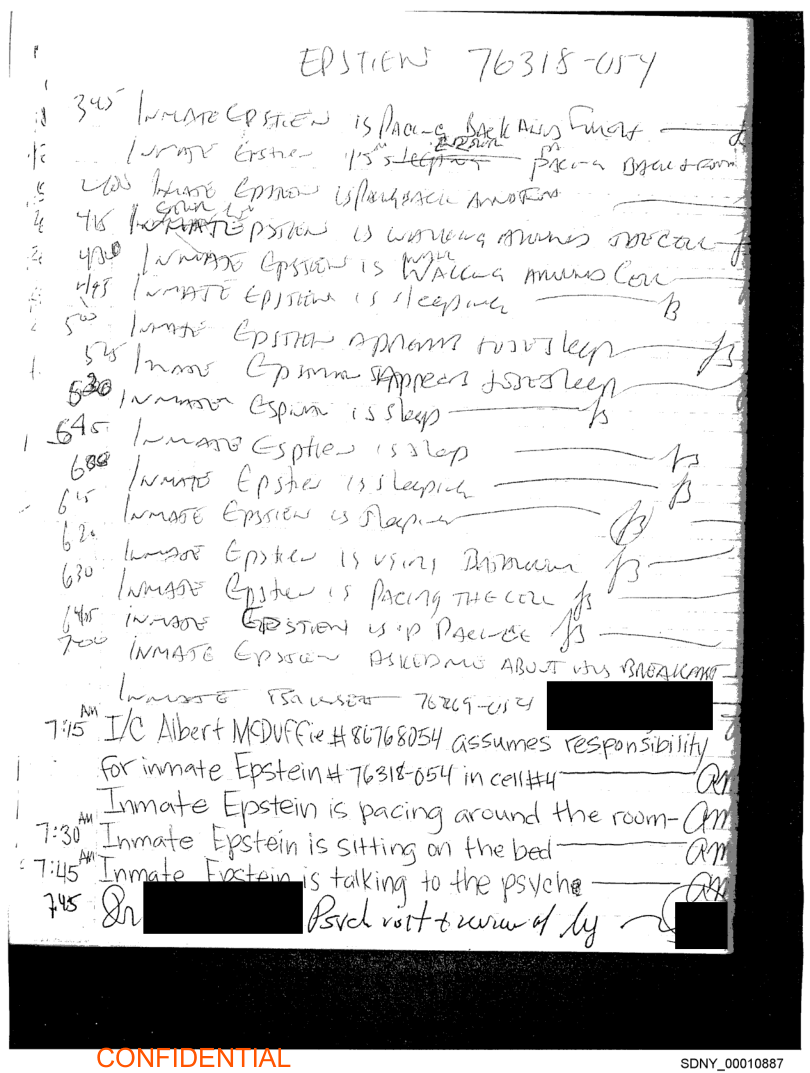 EPSTIEN 76318-054
345 INMATE EPSTIEN IS PACING BACK AND FOURT
INMATE Epstien is sleeping PACING BACK &
400 INMATE EPSTIEN IS PACING BACK AND
415 INMATE EPSTIEN IS WALKING AROUND THE CELL
430 INMATE EPSTIEN IS WALKING AROUND CELL
445 INMATE EPSTIEN IS sleeping JB
500 INMATE EPSTIEN APPEARS TO BE sleep JB
525 INMATE EPSTIEN APPEARS TO BE sleep
530 INMATE IS sleep JB
545 INMATE Esptien is sleep JB
600 INMATE Epstien is sleeping JB
615 INMATE EPSTIEN is sleeping JB
620 INMATE Epstien IS USING BATHROOM JB
630 INMATE Epstien IS PACING THE CELL JB
645 INMATE EPSTIEN IS JB
700 INMATE EPSTIEN ASKED ME ABOUT HIS BREAKFAST
INMATE
7:15 AM I/C Albert McDuffie #86768054 assumes responsibility
for inmate Epstein # 76318-054 in cell #4 am
Inmate Epstein is pacing around the room- am
7:30 AM Inmate Epstein is sitting on the bed am
7:45 AM Inmate Epstein is talking to the psyche am
7:45 Dr Psych visit & review of log
CONFIDENTIAL
SDNY_00010887